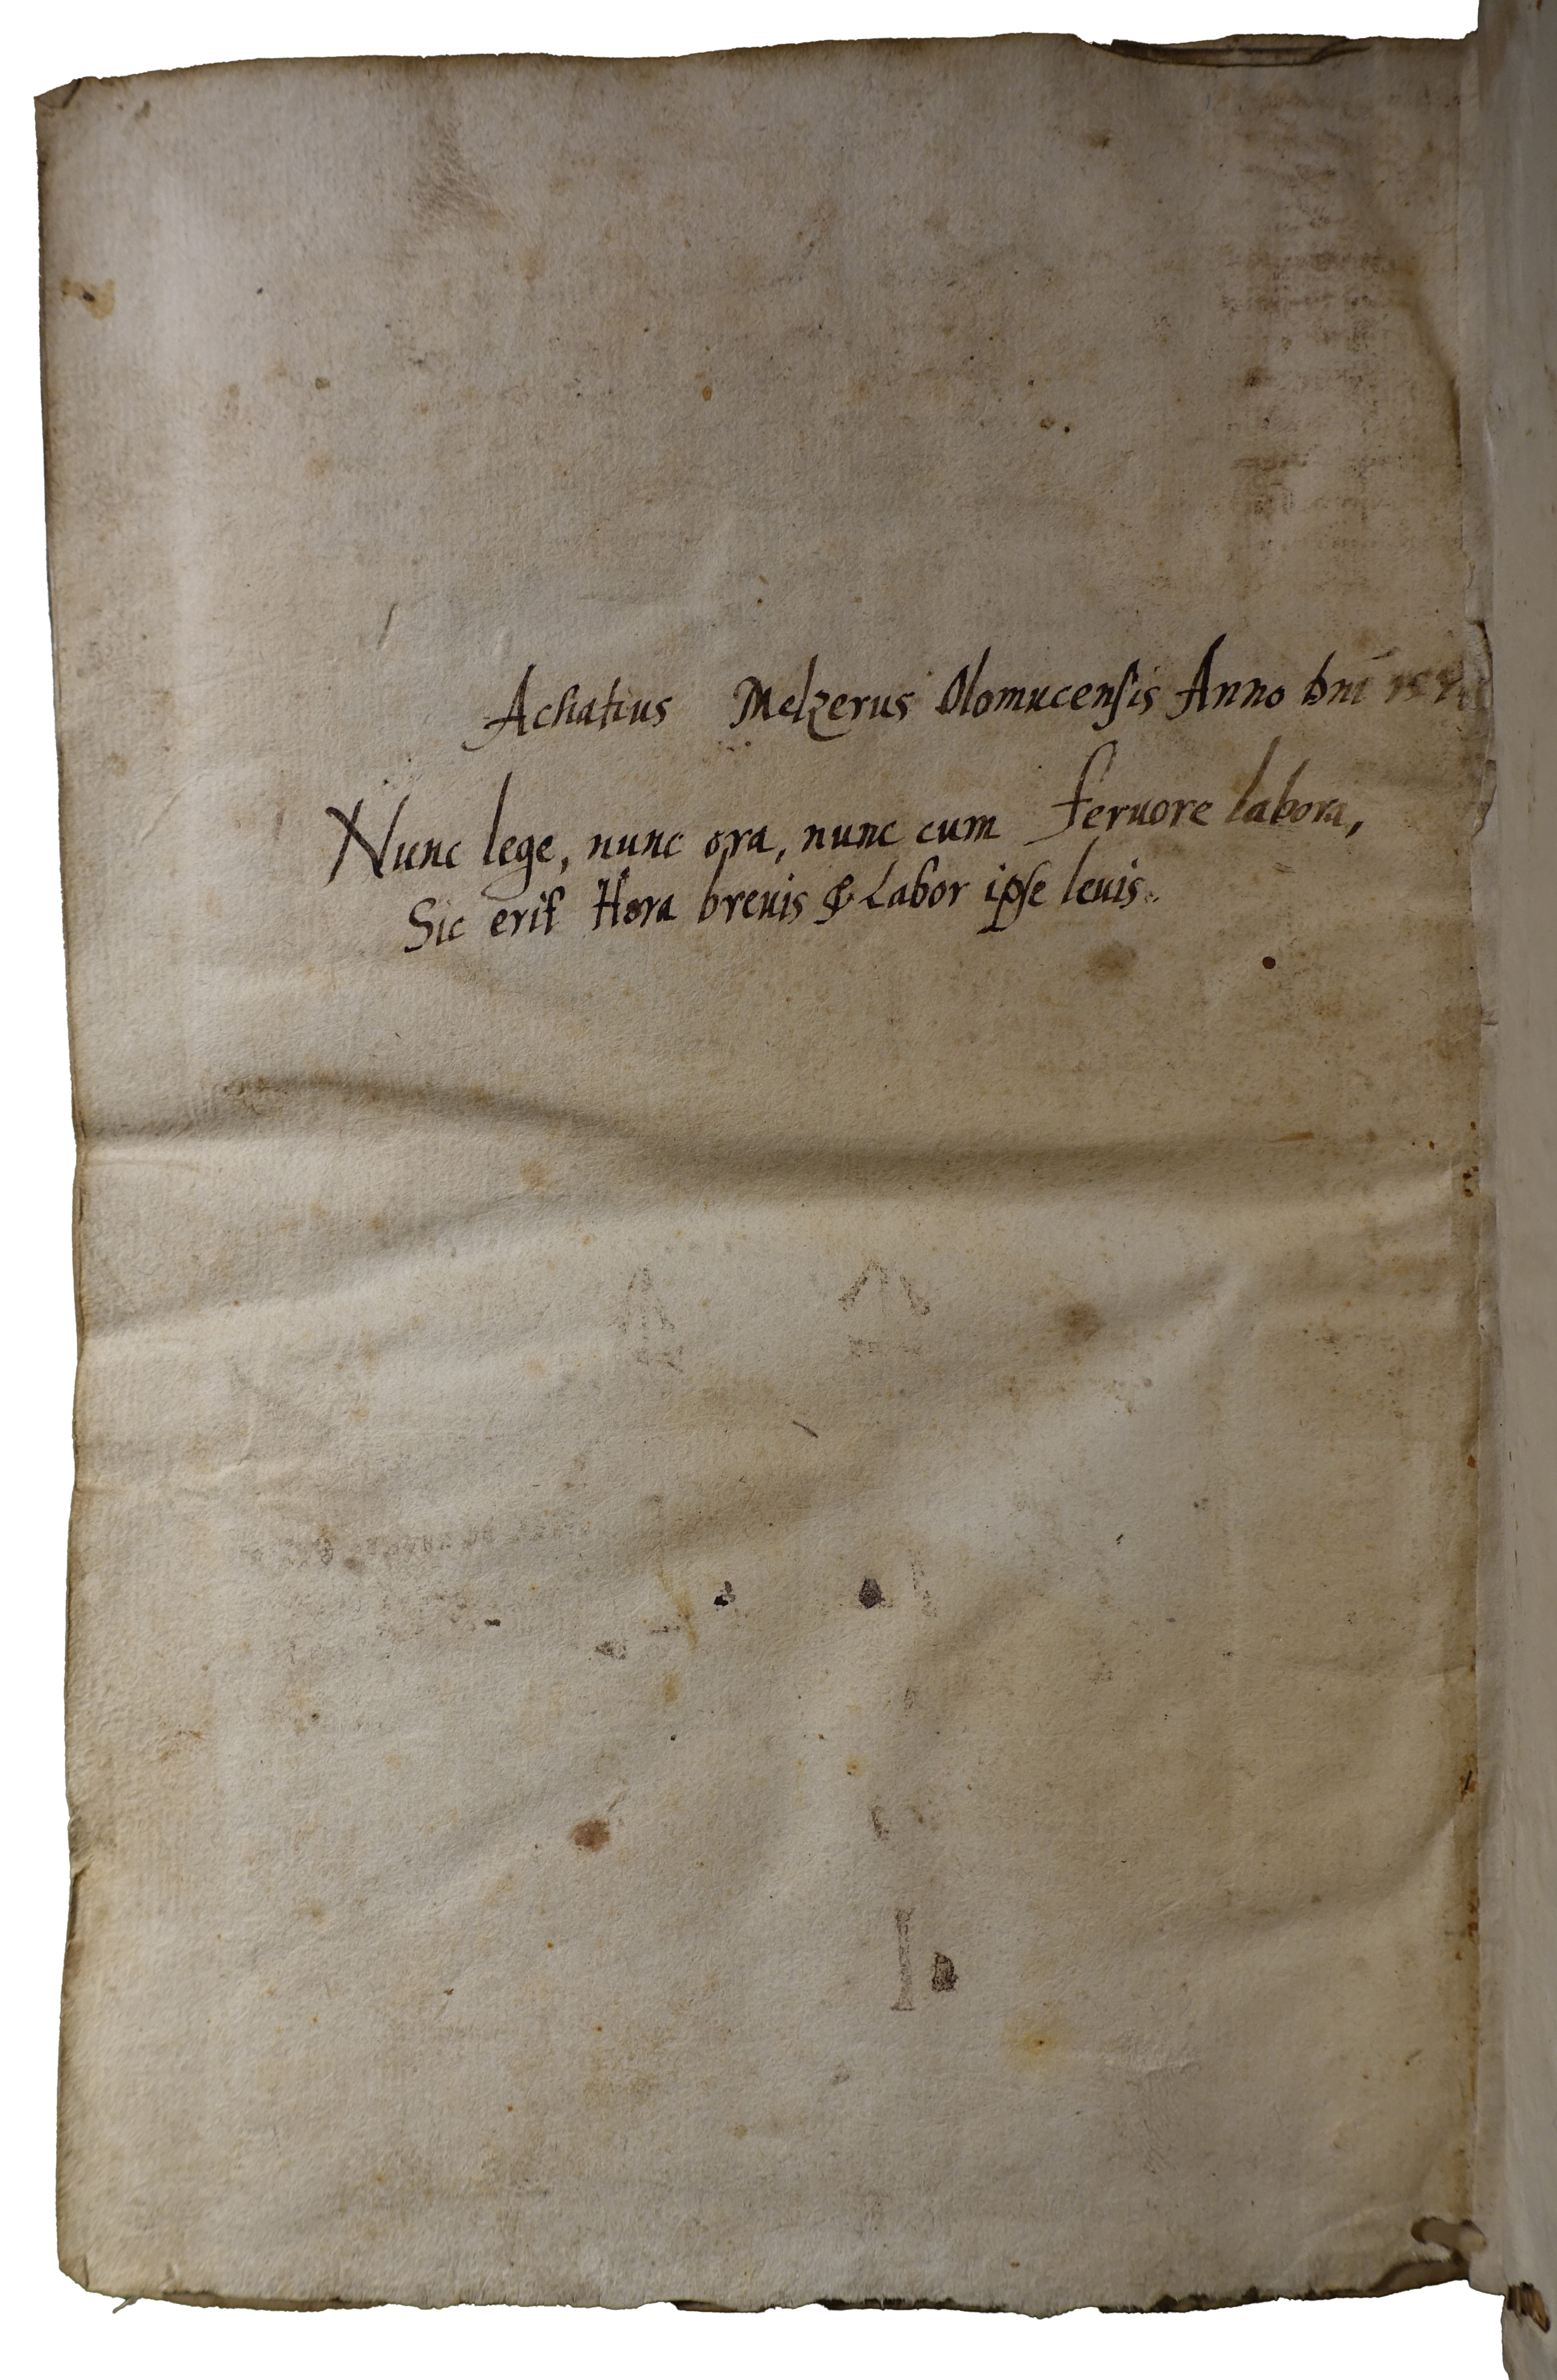 Achatius Melzerus Olomucensis Anno dni
Nunc lege, nunc ora, nunc cum feruore labora,
Sic erit Hora breuis & Labor ipse leuis.